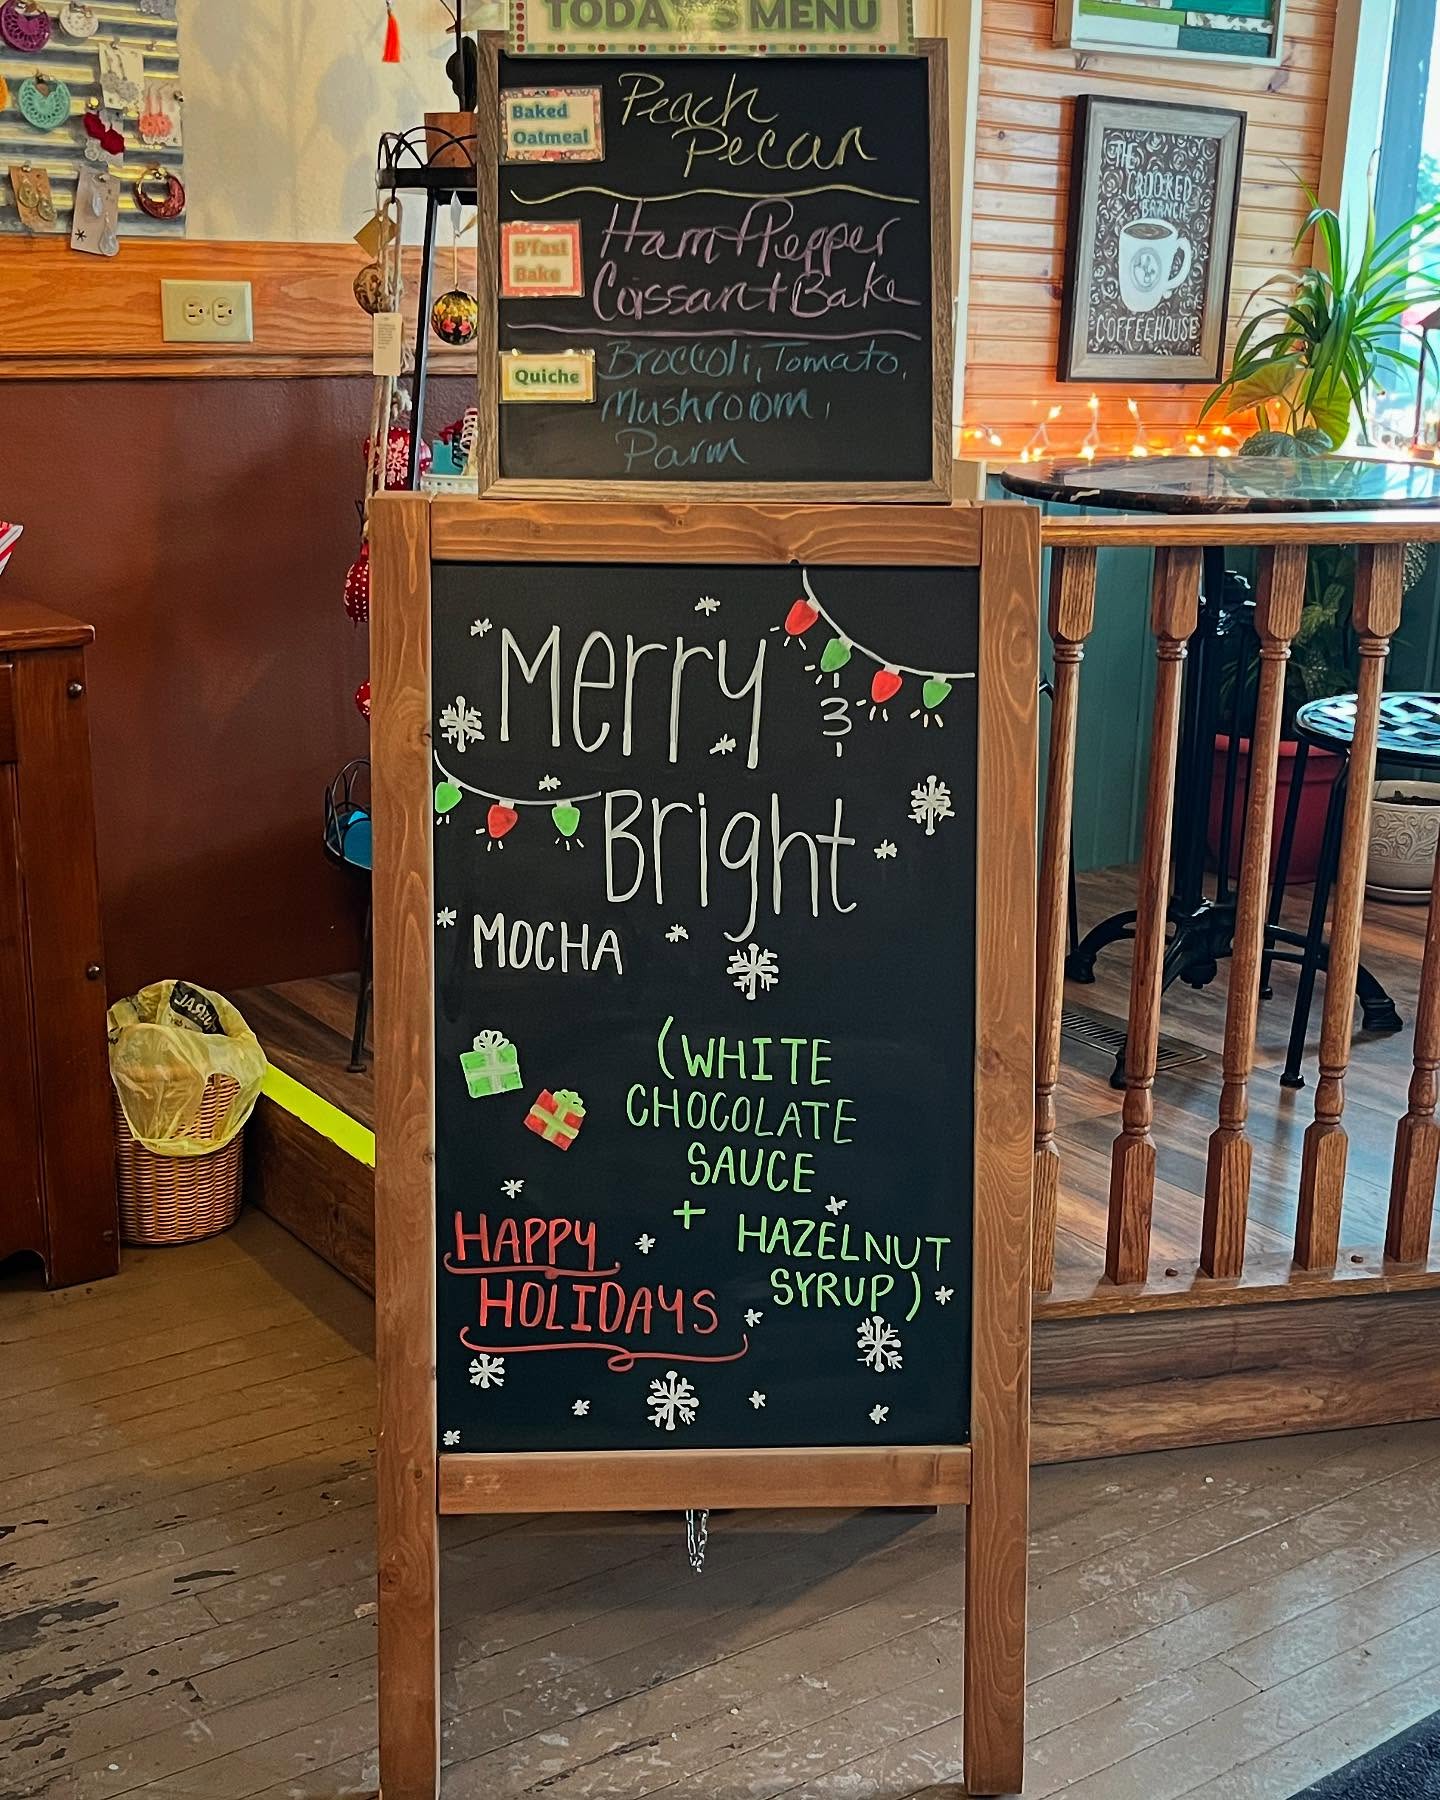 TODAY'S MENU
Baked
Oatmeal
Peach
Pecan
B'fast
Bake
Ham+Pepper
Coissant Bake
Quiche
Broccoli, Tomato,
Mushroom,
Parm
THE
CROOKED
BRANCH
COFFEEHOUSE
Merry
&
Bright
MOCHA
(WHITE
CHOCOLATE
SAUCE
+ HAZELNUT
SYRUP)
HAPPY
HOLIDAYS